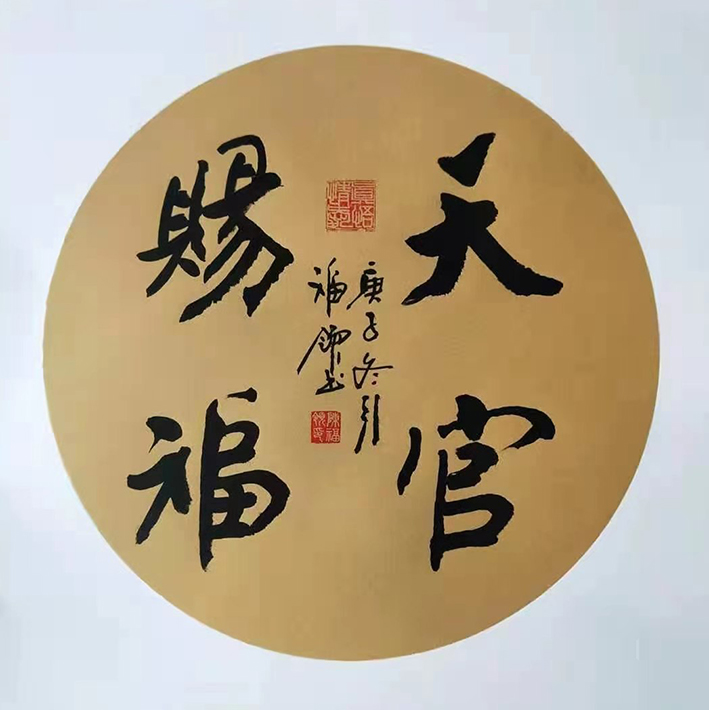 天官
赐福
庚子冬月
福